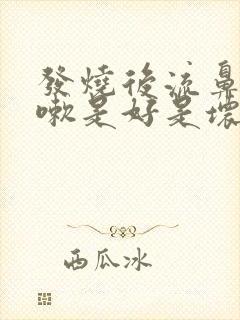 發燒後流鼻
嗽是好是壞
西瓜冰